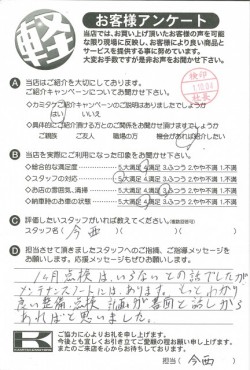 軽
お客様アンケート
当店では、お買い上げのお客様の声を可能
な限り現場に反映し、お客様により良い商品と
サービスを提供する事に努めています。
大変お手数ですが是非お声をお聞かせ下さい。
検印
社長
A 当店はご紹介を大切にしております。
ご紹介キャンペーンについてお聞かせ下さい。
◇カミタケご紹介キャンペーンの説明はありましたでしょうか
はい いいえ
◇具体的にご紹介頂ける方とのご関係をお聞かせ頂けますでしょうか
ご親族 ご友人 職場の方 機会があれば紹介したい
B 当店を実際にご利用になった印象をお聞かせ下さい。
◇総合的な満足度 5.大満足 4.満足 3.ふつう 2.やや不満 1.不満
◇スタッフの対応 5.大満足 4.満足 3.ふつう 2.やや不満 1.不満
◇お店の雰囲気、清掃 5.大満足 4.満足 3.ふつう 2.やや不満 1.不満
◇納車時のお車の状態 5.大満足 4.満足 3.ふつう 2.やや不満 1.不満
C 評価したいスタッフがいれば教えてください。(複数回答可)
スタッフ名( 今西 )
D 担当させて頂きましたスタッフへのご指摘、ご指導、応援メッセージを
お願いします。応援メッセージもぜひお願いします。
1ヶ月点検は、いらないとの話でしたが
メンテナンスノートには、あります。しっかり
良い整備点検計画が書面と話しから
あればと思いました。
K
ご協力に心よりお礼を申し上げます。
今後とも宜しくお引き立てご愛顧の程お願い申し上げます。
またのご来店を心からお待ちしております。
担当( 今西 )